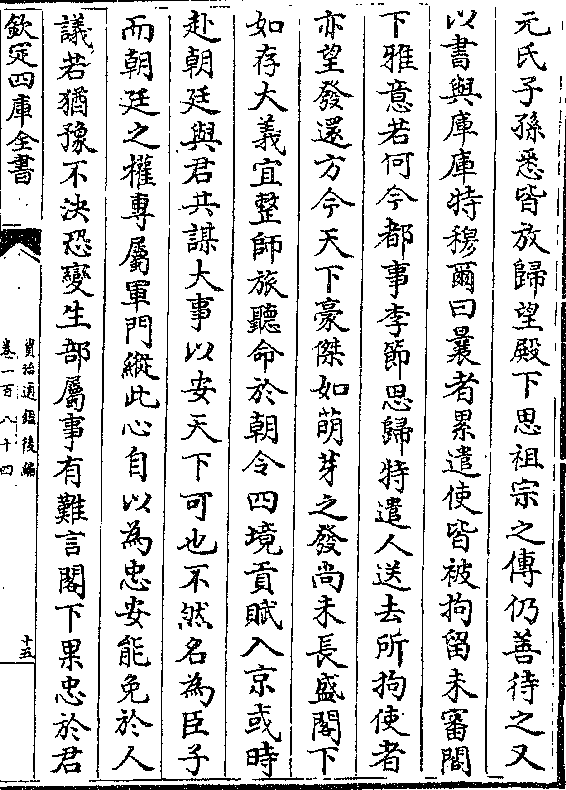 元氏子孫悉皆放歸望殿下思祖宗之傳仍善待之又
以書與庫庫特穆爾曰曩者累遣使皆被拘留未審閣
下雅意若何今都事李節思歸特遣人送去所拘使者
亦望發還方今天下豪傑如萌芽之發尚未長盛閣下
如存大義宜整師旅聽命於朝令四境貢賦入京或時
赴朝廷與君共謀大事以安天下可也不然名為臣子
而朝廷之權專屬軍門縱此心自以為忠安能免於人
議若猶豫不決恐變生部屬事有難言閣下果忠於君
欽定四庫全書
資治通鑑後編
卷一百八十四
十五